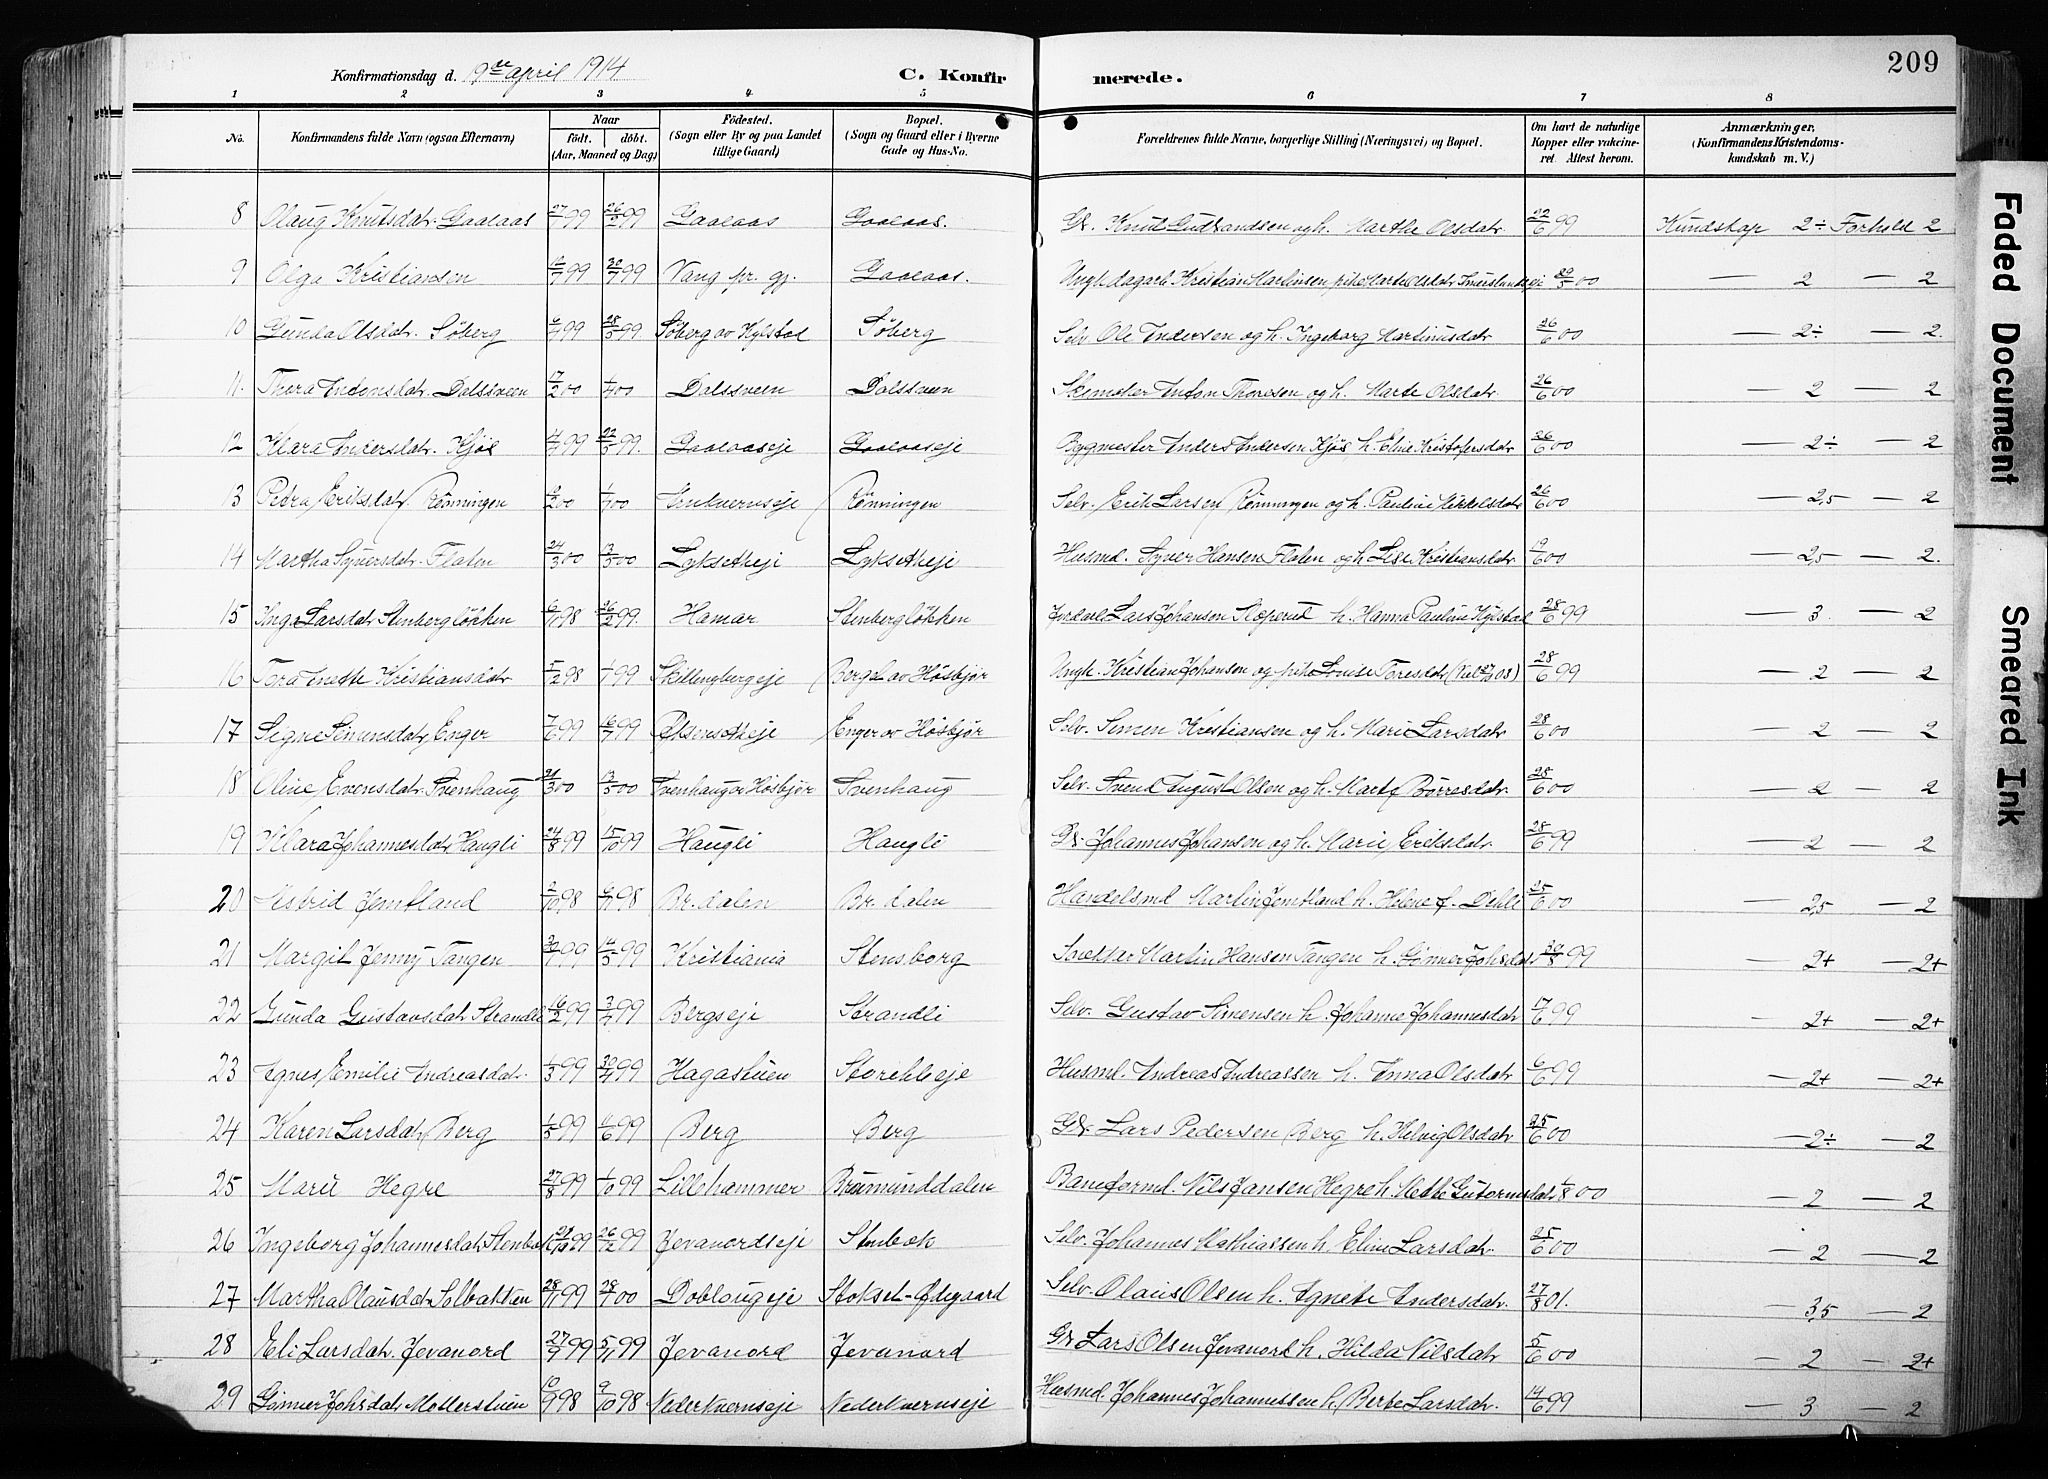 209
Konfirmationsdag d. 19de april 1914 C. Konfirmerede.
1 2 3 4 5 6 7 8
No. Konfirmandens fulde Navn (ogsaa Efternavn) Naar født. døbt. (Aar, Maaned og Dag) Fødested. (Sogn eller By og paa Landet tillige Gaard) Bopæl. (Sogn og Gaard eller i Byerne Gade og Hus-No. Forældrenes fulde Navne, borgerlige Stilling (Næringsvei) og Bopæl. Om havt de naturlige Kopper eller vakcineret. Attest herom. Anmærkninger. (Konfirmandens Kristendomskundskab m. V.)
8 Olaug Knutsdatr. Gaalaas 27/7 99 26/2 99 Gaalaas Gaalaas. Gr. Knut Gudbrandsen og h. Marthe Olsdatr. 22/6 99 Kundskap 2÷ Forhold 2
9 Olga Kristiansen 30/7 99 Vang pr. gj. Gaalaas. Ungk. dagarb. Kristian Martinsen, pike Marte Olsdatr 29/5 00 — 2 — 2
10 Gunda Olsdatr. Søberg 6/4 99 28/5 99 Søberg av Hylstad Søberg Selv. Ole Andersen og h. Ingeborg Martinusdatr 26/6 00 — 2÷ — 2.
11. Thora Antonsdatr. Dalssveen 17/2 00 1/4 00 Dalssveen Dalssveen Skomaker Anton Thoresen og h. Marte Olsdatr. 26/6 00 — 2 — 2
12 Klara Andersdatr. Kjøs 4/4 99 22/5 99. Gaalaaseje Gaalaaseje Bygmester Anders Andersen Kjøs h. Eline Kristofersdatr 26/6 00 — 2÷ — 2
13 Petra Eriksdatr. Rønningen 1/4 00 Rønningen Selv. Erik Larsen Rønningen og h. Pauline Mikkelsdatr 26/6 00 — 2,5 — 2
14 Martha Syversdatr. Flaten 24/3 00 13/5 00 Lykseteje Lykseteje Husmd. Syver Hansen Flaten og h Lise Kristiansdatr 19/6 00 — 2,5 — 2.
15 Inga Larsdatr Stenbergløkken 98 26/2 99. Hamar Stenbergløkken Jordarb. Lars Johansen Slæperud h. Hanna Pauline Hylstad 28/6 99 — 3. — 2
16 Tora Anette Kristiansdatr 5/12 98 1/1 99 Skillingbergeje Berget av Høsbjør Ungk. Kristian Johansen og pike Louise Toresdatr 28/6 99 — 2 — 2
17 Signe Simensdatr Enger 7/6 99 16/7 99 Enger av Høsbjør Selv. Simen Kristiansen og h. Marie Larsdatr 28/6 00 — 2 — 2
18 Oline Evensdatr. Svenhaug 21/3 00 13/5 00 Svenhaug av Høsbjør Svenhaug Selv. Svend August Olsen og h. Marte Børresdatr. 28/6 00 — 2 — 2
19 Klara Johannesdatr Haugli 24/8 99 15/10 99 Haugli Haugli Gr. Johannes Johansen og h. Marie Eriksdatr. 28/6 99 — 2 — 2
20 Astrid Jemtland 2/10 98 6/11 98 Br. dalen Br. dalen Handelsmd. Martin Jemtland h. Helene f. Dehli 25/6 00 — 2,5 — 2
21 Margit Jenny Tangen 99 14/5 99 Kristiania Stensborg Martin Hansen Tangen h. Gunner Johsdatr 30/8 99 — 2+ — 2+
22 Gunda Gustavsdatr Strandli 16/2 99 3/4 99 Bergseje Strandli Selv. Gustav Simensen h. Johanne Johannesdatr 17/6 99 — 2+ — 2+
23 Agnes Emilie Andreasdatr. 1/3 99 30/4 99 Hagastuen Storihleeje Husmd. Andreas Andreassen h. Anna Olsdatr 6/6 99 — 2+ — 2+
24 Karen Larsdatr Berg 1/5 99 4/6 99 Berg Berg Gr. Lars Pedersen Berg h. Helvig Olsdatr 25/6 00 — 2÷ — 2
25 Marie Hegre 27/8 99 1/10 99 Lillehammer Brumunddalen Baneformd. Nils Jansen Hegre h. Mette Gutormsdatr 00 — 2 — 2
26 Ingeborg Johannesdatr Stenbæk 99 26/12 99 Jevanordseje Stenbæk Selv. Johannes Mathiassen h. Eline Larsdatr. 25/6 00 — 2 — 2
27 Martha Olausdatr Solbakken 28/11 99 28/1 00 Doblougeje Stokset-Ødegaard Selv. Olaus Olsen h. Agnete Andersdatr. 27/8 01. — 3,5 — 2
28 Eli Larsdatr. Jevanord 27/9 99 5/11 99 Jevanord Jevanord Gr Lars Olsen Jevanord h. Hilda Nilsdatr 5/6 00 — 2 — 2+
29 Gunner Johsdatr Møllerstuen 98 9/10 98 Nederkverneje Nederkverneje Husmd. Johannes Johannessen h. Berte Larsdatr. 14/6 99 — 3 — 2
Faded Document
Smeared Ink